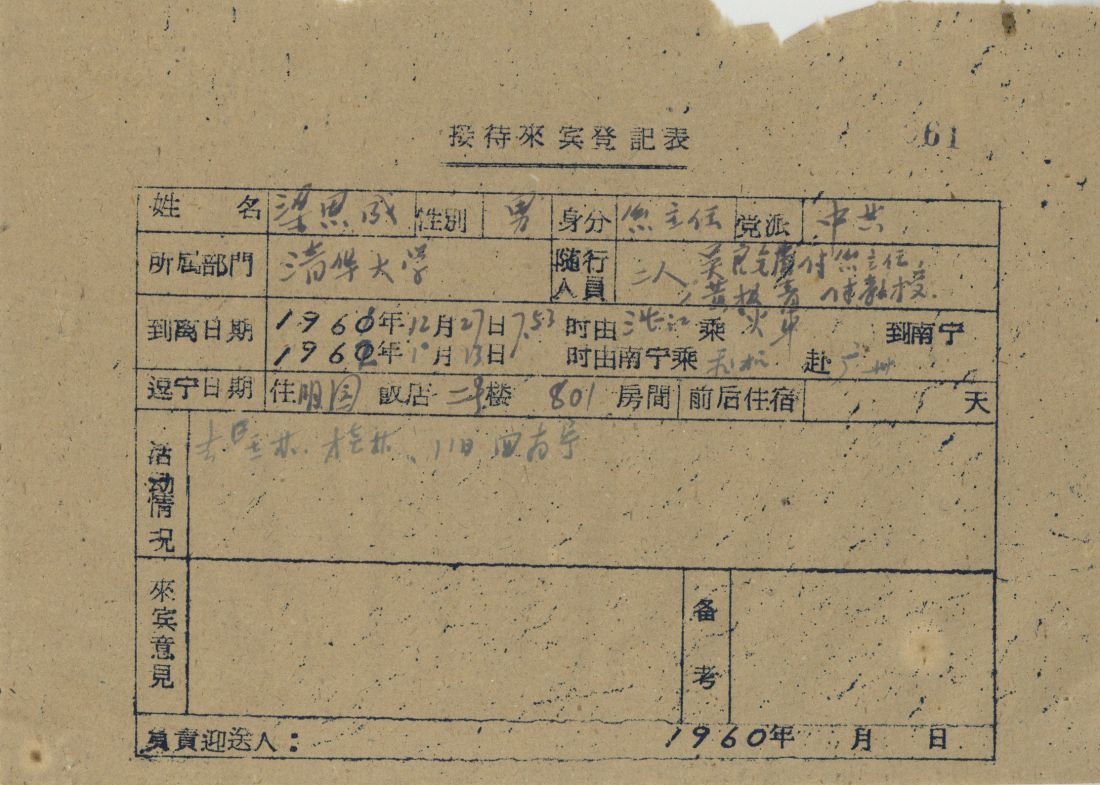 接待來宾登記表
61
姓名 梁思成 性別 男 身分 系主任 党派 中共
所屆部門 清华大学 随行人員 二人 吴良鏞付系主任
黄 付教授
到离日期 1961年12月27日7.53时由湛江乘火車到南宁
1962年1月13日时由南宁乘飞机赴广州
逗宁日期 住明园飯店二号楼801房間 前后住宿 天
活动情况 去 桂林、11日回南宁
來宾意見
备考
負責迎送人： 1960年 月 日